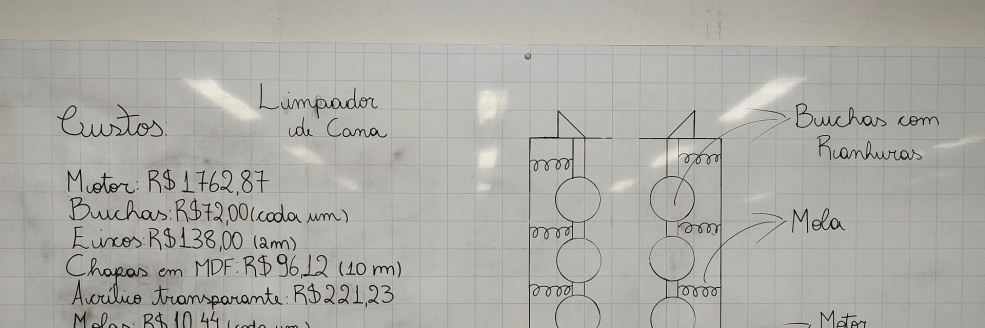 Limpador
de Cana
Custos:
Motor: R$1762,87
Buchas: R$72,00 (cada um)
Eixos: R$138,00 (2m)
Chapas em MDF: R$96,12 (10 m)
Acrílico transparante: R$221,23
Molas: R$10,44 (cada um)
Buchas com
Ranhuras
Mola
Motor